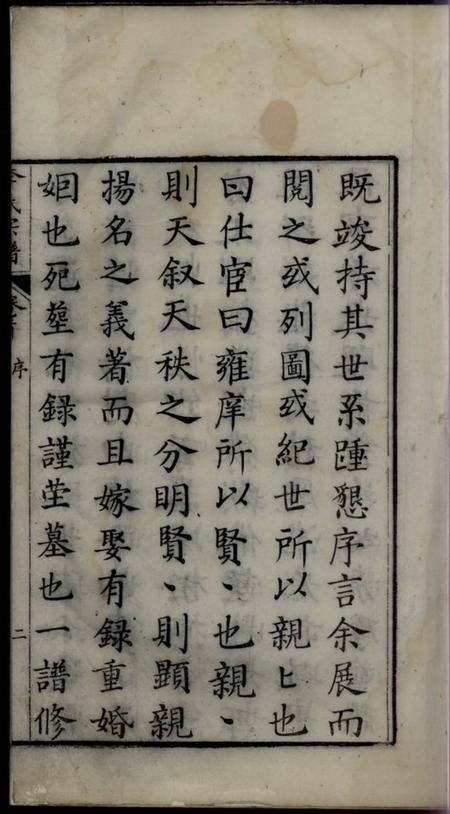 既竣持其世系踵懇序言余展而
閱之或列圖或紀世所以親匕也
曰仕宦曰雍庠所以賢丶也親丶
則天叙天秩之分明賢丶則顕親
揚名之義著而且嫁娶有録重婚
姻也死塟有録謹茔墓也一譜修
氏宗譜 序 二